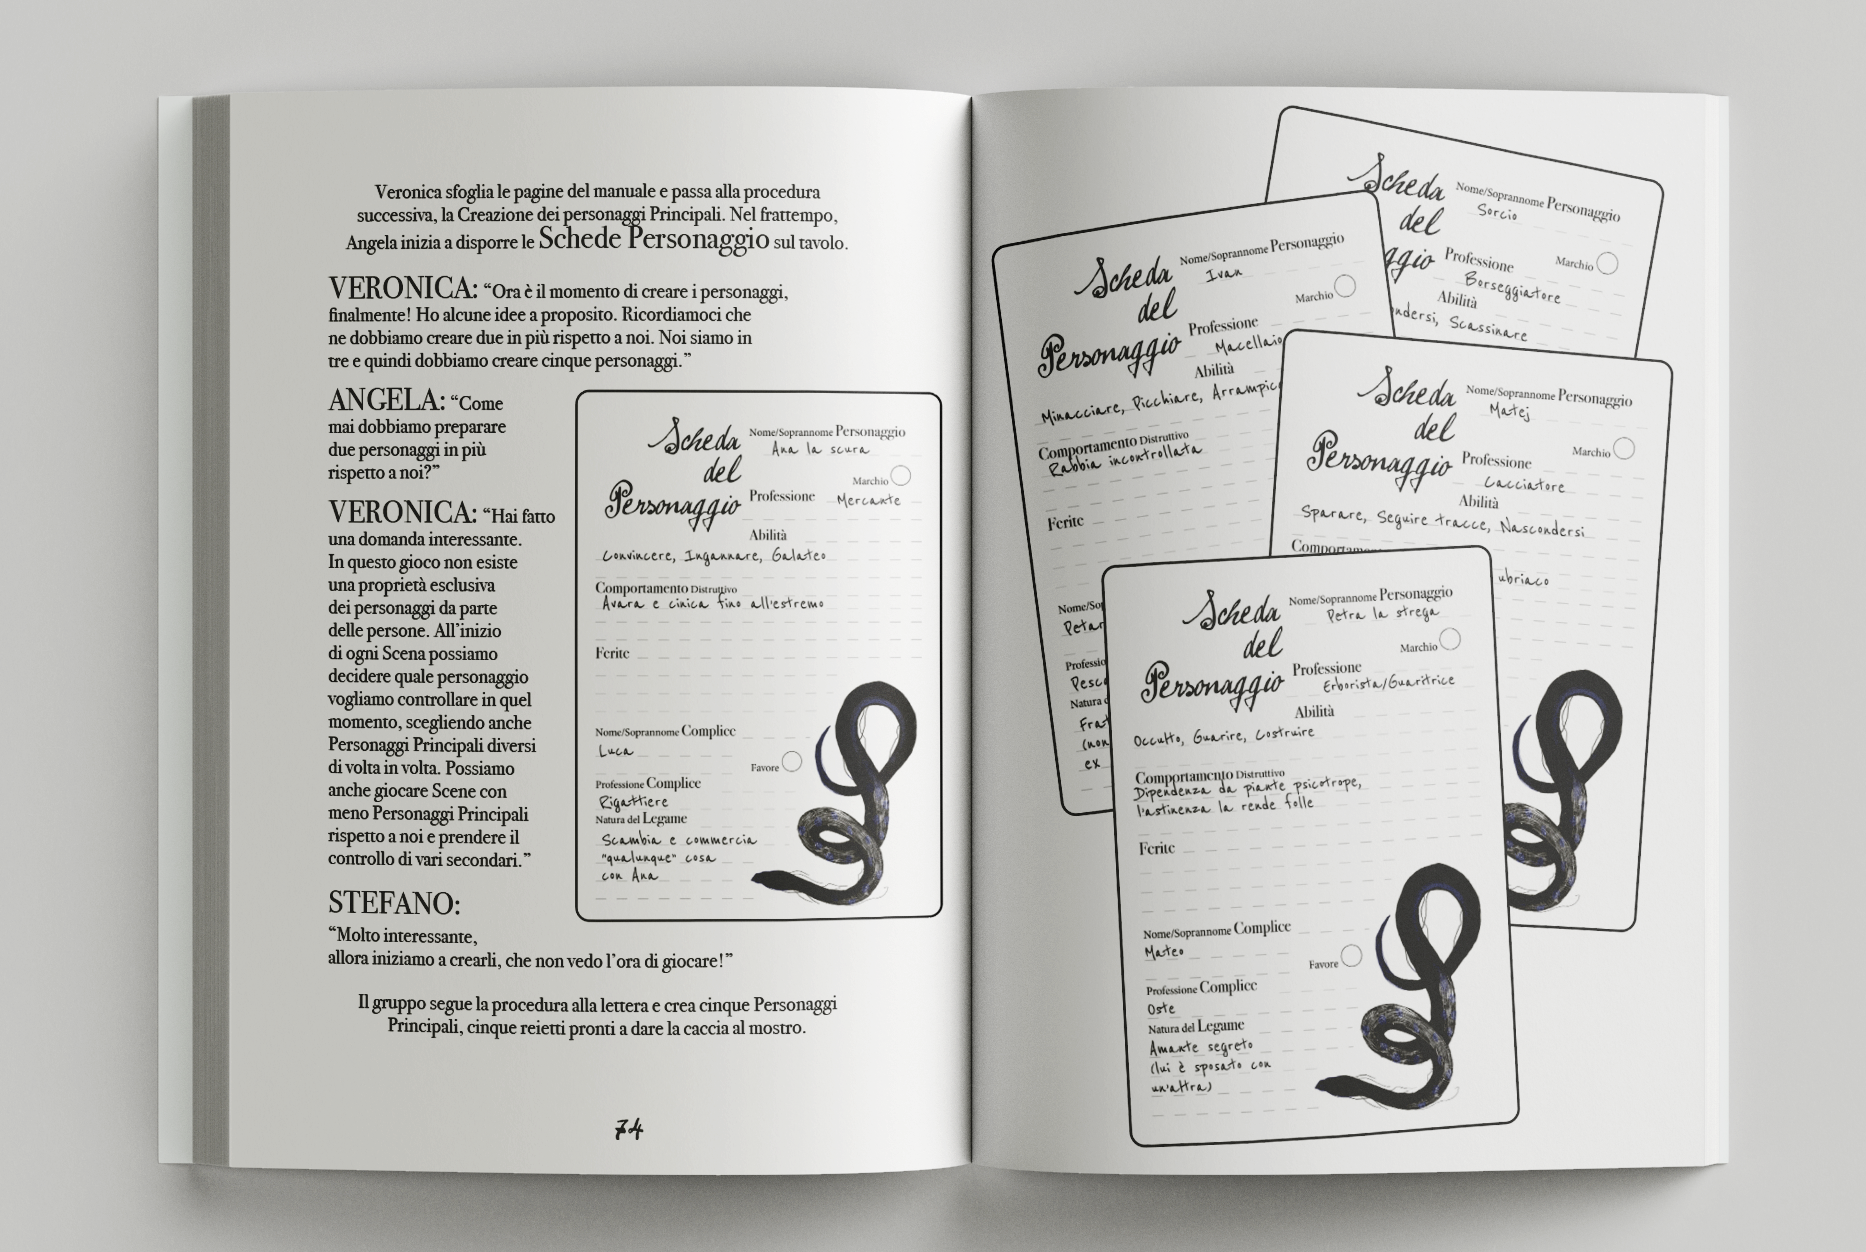 Veronica sfoglia le pagine del manuale e passa alla procedura
successiva, la Creazione dei personaggi Principali. Nel frattempo,
Angela inizia a disporre le Schede Personaggio sul tavolo.
VERONICA: “Ora è il momento di creare i personaggi,
finalmente! Ho alcune idee a proposito. Ricordiamoci che
ne dobbiamo creare due in più rispetto a noi. Noi siamo in
tre e quindi dobbiamo creare cinque personaggi.”
ANGELA: “Come
mai dobbiamo preparare
due personaggi in più
rispetto a noi?”
VERONICA: “Hai fatto
una domanda interessante.
In questo gioco non esiste
una proprietà esclusiva
dei personaggi da parte
delle persone. All’inizio
di ogni Scena possiamo
decidere quale personaggio
vogliamo controllare in quel
momento, scegliendo anche
Personaggi Principali diversi
di volta in volta. Possiamo
anche giocare Scene con
meno Personaggi Principali
rispetto a noi e prendere il
controllo di vari secondari.”
STEFANO:
“Molto interessante,
allora iniziamo a crearli, che non vedo l’ora di giocare!”
Il gruppo segue la procedura alla lettera e crea cinque Personaggi
Principali, cinque reietti pronti a dare la caccia al mostro.
74
Scheda
del
Personaggio
Nome/Soprannome Personaggio
Ana la scura
Marchio
Professione
Mercante
Abilità
Convincere, Ingannare, Galateo
Comportamento Distruttivo
Avara e cinica fino all'estremo
Ferite
Nome/Soprannome Complice
Luca
Favore
Professione Complice
Rigattiere
Natura del Legame
Scambia e commercia
"qualunque" cosa
con Ana
Scheda
del
ggio
Nome/Soprannome Personaggio
Sorcio
Marchio
Professione
Borseggiatore
Abilità
ndersi, Scassinare
Scheda
del
Personaggio
Nome/Soprannome Personaggio
Ivan
Marchio
Professione
Macellaio
Abilità
Minacciare, Picchiare, Arrampic
Comportamento Distruttivo
Rabbia incontrollata
Ferite
Nome/Sop
Petar
Professio
Pesca
Natura d
Frat
(non
ex
Scheda
del
Personaggio
Nome/Soprannome Personaggio
Matej
Marchio
Professione
Cacciatore
Abilità
Sparare, Seguire tracce, Nascondersi
Comportame
ubriaco
Scheda
del
Personaggio
Nome/Soprannome Personaggio
Petra la strega
Marchio
Professione
Erborista/Guaritrice
Abilità
Occulto, Guarire, Costruire
Comportamento Distruttivo
Dipendenza da piante psicotrope,
l'astinenza la rende folle
Ferite
Nome/Soprannome Complice
Mateo
Favore
Professione Complice
Oste
Natura del Legame
Amante segreto
(lui è sposato con
un'altra)